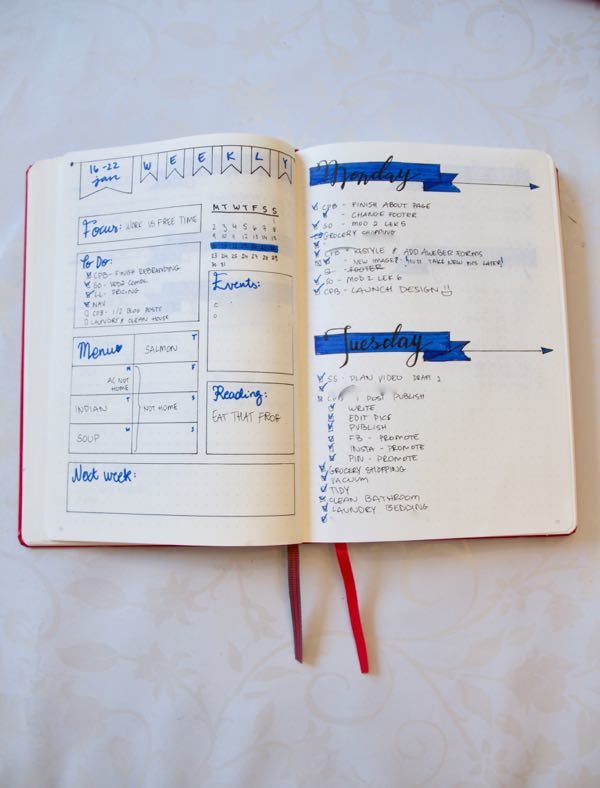 16-22 jan
WEEKLY
Focus: WORK IS FREE TIME
MTWTFSS
1
2 3 4 5 6 7 8
9 10 11 12 13 14 15
23 24 25 26 27 28 29
30 31
To Do:
CPB- FINISH REBRANDING
SO-
LL- PRICING
NAV
CPB- 1/2 BLOG POSTS
LAUNDRY & CLEAN HOUSE
Events:
Menu
SALMON T
M
NOT HOME
F
INDIAN T
NOT HOME S
SOUP W
S
Reading:
EAT THAT FROG
Next week:
Monday
CPB - FINISH ABOUT PAGE
- CHANGE FOOTER
SO - MOD 2 LEK 5
GROCERY SHOPPING
CTB - RESTYLE & ADD AWEBER FORMS
- NEW IMAGE? (TAKE NEW PICS LATER)
FOOTER
SO - MOD 2 LEK 6
CPB - LAUNCH DESIGN
Tuesday
SS - PLAN VIDEO DRAFT 2
1 POST PUBLISH
WRITE
EDIT PICS
PUBLISH
FB - PROMOTE
INSTA - PROMOTE
PIN - PROMOTE
GROCERY SHOPPING
VACUUM
TIDY
CLEAN BATHROOM
LAUNDRY BEDDING